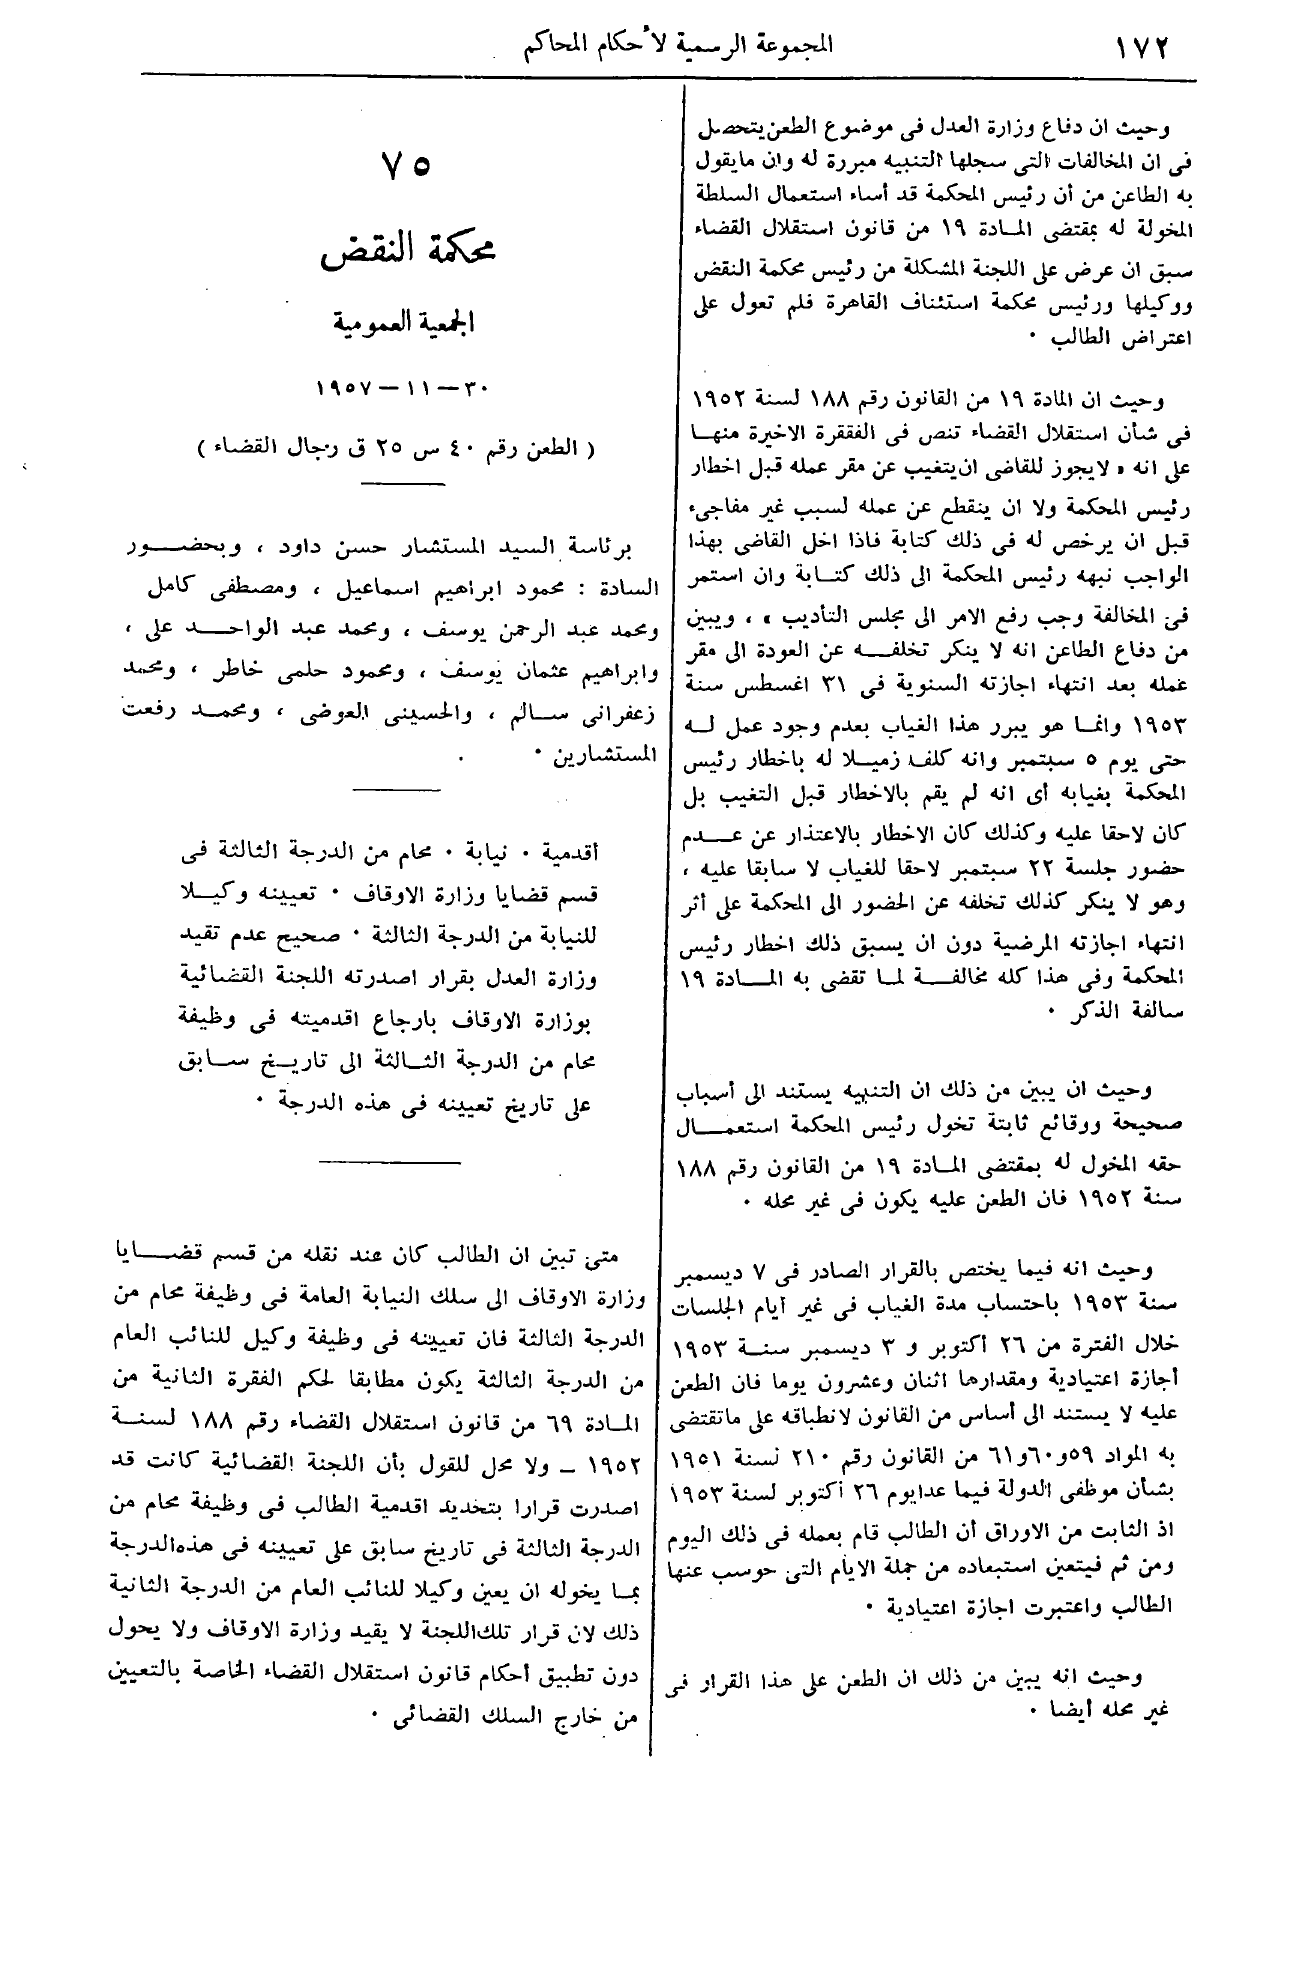 ١٧٢
المجموعة الرسمية لأحكام المحاكم
وحيث ان دفاع وزارة العدل فى موضوع الطعن يتحصل
فى ان المخالفات التى سجلها التنبيه مبررة له وان مايقول
به الطاعن من أن رئيس المحكمة قد أساء استعمال السلطة
المخولة له بمقتضى المادة ١٩ من قانون استقلال القضاء
سبق ان عرض على اللجنة المشكلة من رئيس محكمة النقض
ووكيلها ورئيس محكمة استئناف القاهرة فلم تعول على
اعتراض الطالب ٠
وحيث ان المادة ١٩ من القانون رقم ١٨٨ لسنة ١٩٥٢
فى شأن استقلال القضاء تنص فى الفقرة الاخيرة منها
على انه « لايجوز للقاضى ان يتغيب عن مقر عمله قبل اخطار
رئيس المحكمة ولا ان ينقطع عن عمله لسبب غير مفاجىء
قبل ان يرخص له فى ذلك كتابة فاذا اخل القاضى بهذا
الواجب نبهه رئيس المحكمة الى ذلك كتابة وان استمر
فى المخالفة وجب رفع الامر الى مجلس التأديب » ، ويبين
من دفاع الطاعن انه لا ينكر تخلفه عن العودة الى مقر
عمله بعد انتهاء اجازته السنوية فى ٣١ اغسطس سنة
١٩٥٣ وانما هو يبرر هذا الغياب بعدم وجود عمل له
حتى يوم ٥ سبتمبر وانه كلف زميلا له باخطار رئيس
المحكمة بغيابه أى انه لم يقم بالاخطار قبل التغيب بل
كان لاحقا عليه وكذلك كان الاخطار بالاعتذار عن عدم
حضور جلسة ٢٢ سبتمبر لاحقا للغياب لا سابقا عليه ،
وهو لا ينكر كذلك تخلفه عن الحضور الى المحكمة على أثر
انتهاء اجازته المرضية دون ان يسبق ذلك اخطار رئيس
المحكمة وفى هذا كله مخالفة لما تقضى به المادة ١٩
سالفة الذكر ٠
وحيث ان يبين من ذلك ان التنبيه يستند الى أسباب
صحيحة ووقائع ثابتة تخول رئيس المحكمة استعمال
حقه المخول له بمقتضى المادة ١٩ من القانون رقم ١٨٨
سنة ١٩٥٢ فان الطعن عليه يكون فى غير محله ٠
وحيث انه فيما يختص بالقرار الصادر فى ٧ ديسمبر
سنة ١٩٥٣ باحتساب مدة الغياب فى غير أيام الجلسات
خلال الفترة من ٢٦ أكتوبر و ٣ ديسمبر سنة ١٩٥٣
أجازة اعتيادية ومقدارها اثنان وعشرون يوما فان الطعن
عليه لا يستند الى أساس من القانون لانطباقه على ماتقتضى
به المواد ٥٩و٦٠و٦١ من القانون رقم ٢١٠ لسنة ١٩٥١
بشأن موظفى الدولة فيما عدايوم ٢٦ أكتوبر لسنة ١٩٥٣
اذ الثابت من الاوراق أن الطالب قام بعمله فى ذلك اليوم
ومن ثم فيتعين استبعاده من جملة الايام التى حوسب عنها
الطالب واعتبرت اجازة اعتيادية ٠
وحيث انه يبين من ذلك ان الطعن على هذا القرار فى
غير محله أيضا ٠
٧٥
محكمة النقض
الجمعية العمومية
٣٠ – ١١ – ١٩٥٧
( الطعن رقم ٤٠ س ٢٥ ق رجال القضاء )
برئاسة السيد المستشار حسن داود ، وبحضور
السادة : محمود ابراهيم اسماعيل ، ومصطفى كامل
ومحمد عبد الرحمن يوسف ، ومحمد عبد الواحد على ،
وابراهيم عثمان يوسف ، ومحمود حلمى خاطر ، ومحمد
زعفرانى سالم ، والحسينى العوضى ، ومحمد رفعت
المستشارين ٠
أقدمية ٠ نيابة ٠ محام من الدرجة الثالثة فى
قسم قضايا وزارة الاوقاف ٠ تعيينه وكيلا
للنيابة من الدرجة الثالثة ٠ صحيح عدم تقيد
وزارة العدل بقرار اصدرته اللجنة القضائية
بوزارة الاوقاف بارجاع اقدميته فى وظيفة
محام من الدرجة الثالثة الى تاريخ سابق
على تاريخ تعيينه فى هذه الدرجة ٠
متى تبين ان الطالب كان عند نقله من قسم قضايا
وزارة الاوقاف الى سلك النيابة العامة فى وظيفة محام من
الدرجة الثالثة فان تعيينه فى وظيفة وكيل للنائب العام
من الدرجة الثالثة يكون مطابقا لحكم الفقرة الثانية من
المادة ٦٩ من قانون استقلال القضاء رقم ١٨٨ لسنة
١٩٥٢ – ولا محل للقول بأن اللجنة القضائية كانت قد
اصدرت قرارا بتحديد اقدمية الطالب فى وظيفة محام من
الدرجة الثالثة فى تاريخ سابق على تعيينه فى هذه الدرجة
بما يخوله ان يعين وكيلا للنائب العام من الدرجة الثانية
ذلك لان قرار تلك اللجنة لا يقيد وزارة الاوقاف ولا يحول
دون تطبيق أحكام قانون استقلال القضاء الخاصة بالتعيين
من خارج السلك القضائى ٠